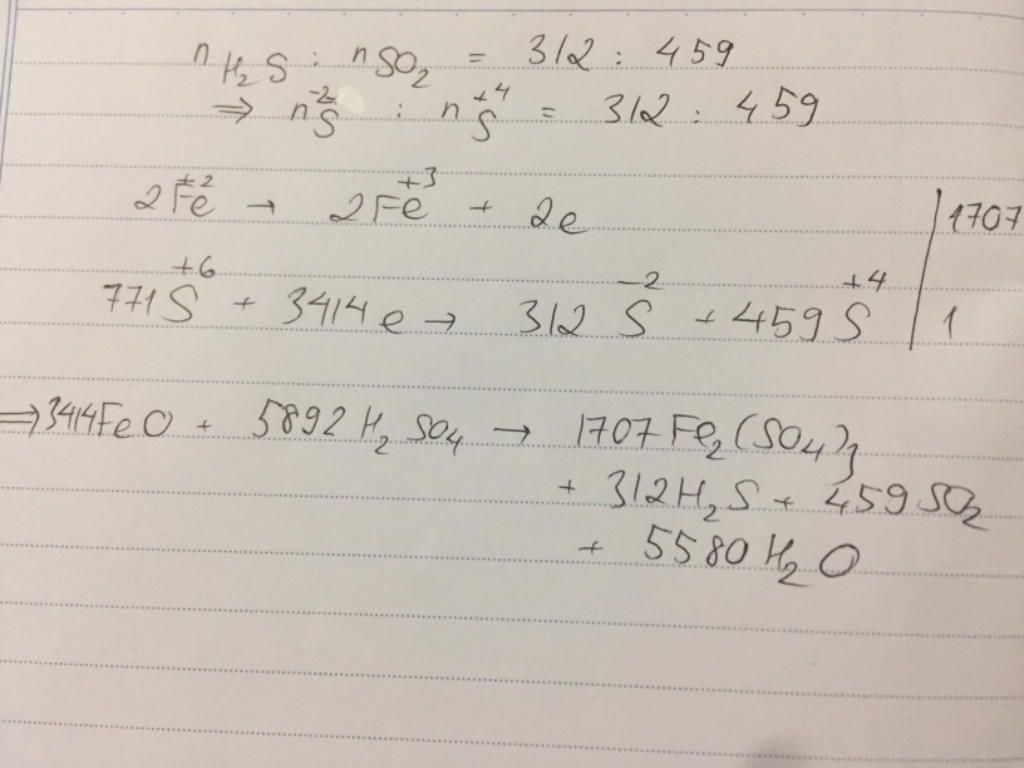 nH₂S : nSO₂ = 312 : 459
⇒ nS⁻² : nS⁺⁴ = 312 : 459
2Fe⁺² → 2Fe⁺³ + 2e | 1707
771S⁺⁶ + 3414e → 312 S⁻² + 459S⁺⁴ | 1
⇒3414FeO + 5892H₂SO₄ → 1707Fe₂(SO₄)₃
+ 312H₂S + 459SO₂
+ 5580H₂O